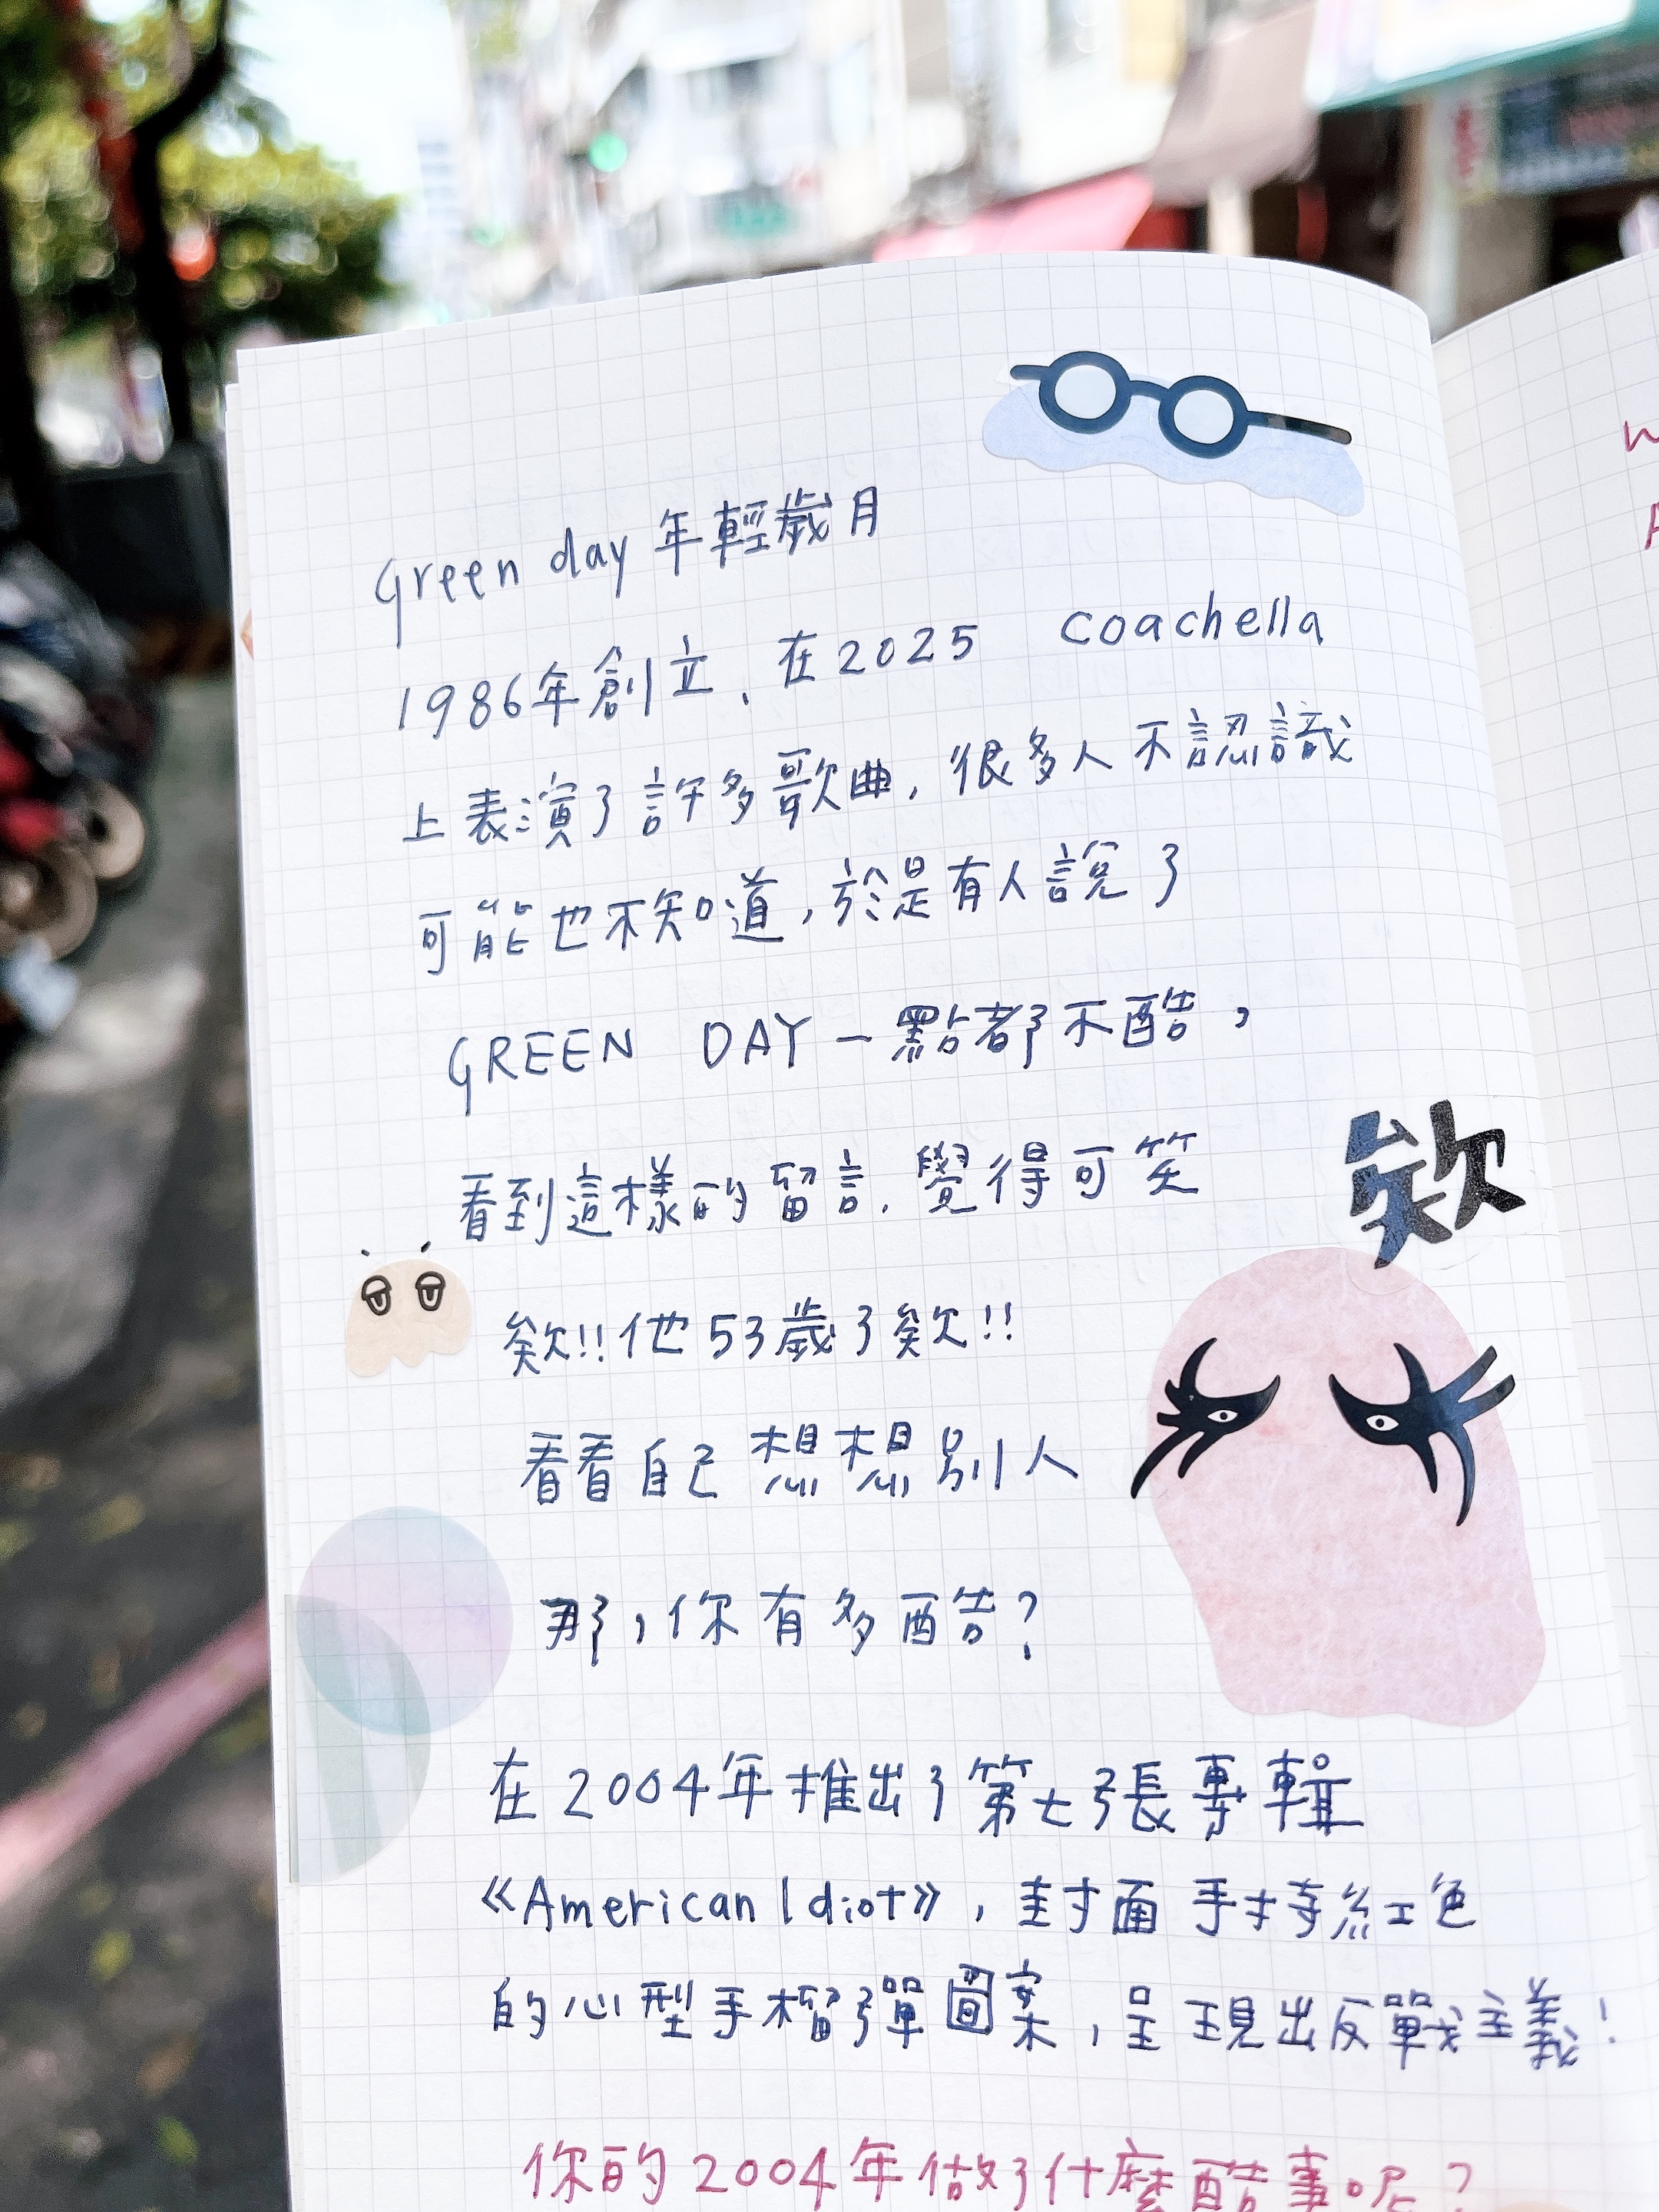 Green day 年輕歲月
1986年創立、在2025 coachella
上表演了許多歌曲，很多人不認識
可能也不知道，於是有人說了
GREEN DAY 一點都不酷，
看到這樣的留言，覺得可笑
欸
欸!!他53歲了欸!!
看看自己想想別人
那，你有多酷？
在2004年推出了第七張專輯
《American Idiot》，封面手持紅色
的心型手榴彈圖案，呈現出反戰主義！
你的2004年做了什麼酷事呢？